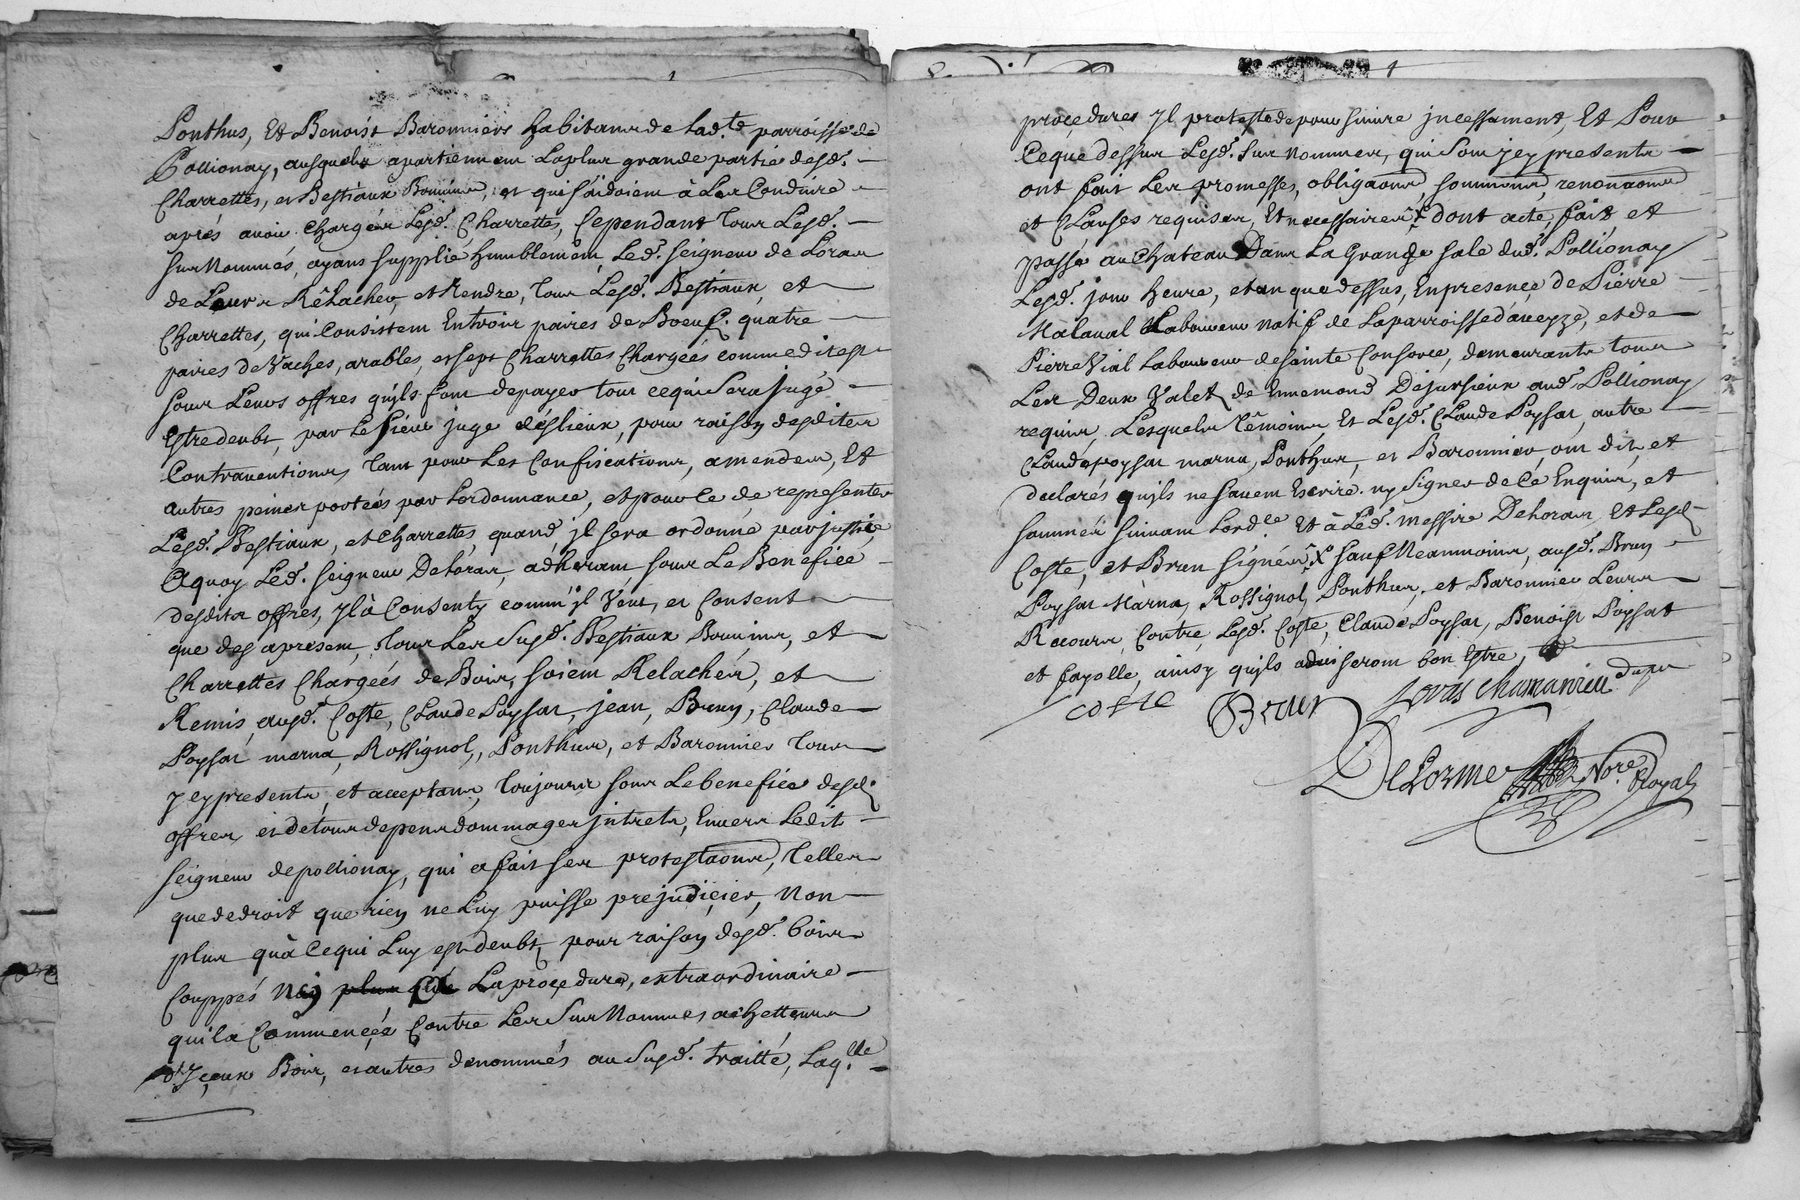 Ponthus, Et Benoist Baronnier habitans de lad.te parroisse de
Pollionay, ausquels apartiennent la plus grande partie desd.
Charrettes, et Bestiaux Bouuins, et qui s'aidoient à Les Conduire
aprés auoir chargés Lesd. Charrettes, Cependant tous Lesd.
surnommés, ayans supplié humblement Led. seigneur de Loras
de Leurs Rêlacher, et Rendre, tous Lesd. Bestiaux, et
Charrettes, qui Consistent En trois paires de Boeufs. quatre
paires de Vaches, arables, et sept Charrettes Chargées comme dit est
sous Leurs offres quils font de payer tout ce qui sera jugé
Estre deubt, par Le sieur juge des lieux, pour raison desdites
Contrauentions, tant pour Les Confiscations, amendes, Et
autres peines portées par Lordonnance, et pour Ce de representer
Lesd. Bestiaux, et charrettes quand jl sera ordonné par justice
Aquoy Led. seigneur De Loras, adherant sous Le Benefice
desdits offres, yl à Consenty comm'jl Veut, et Consent
que des apresent, tous Les Susd. Bestiaux Bouuins, et
Charrettes Chargées de Bois, soient Relachés, et
Remis, ausd. Coste, Claude Poysat, jean, Brun, Claude
Poysat marna, Rossignol, Ponthus, et Baronnier tous
jcy presents, et acceptans, toujours sous Le benefice desd.
offres et de tous depens dommages jntrets, Enuers Ledit
seigneur de pollionay, qui a fait ses protestaons, telles
que de droit que rien ne Luy puisse prejudicier, Non
plus qu'à Ce qui Luy est deubt, pour raison desd. bois
Couppés La procedure, extraordinaire
qu'il a Commencée Contre Les Sur Nommes achetteurs
d'yceux Bois, et autres denommés au Susd. traitté, Laq.lle
procedures yl proteste de poursuiure jncessament, Et Pour
Ce que dessus Lesd. Sur nommes, qui sont jcy presents
ont fait Les promesses, obligaons, soumions, renonaons
et Clauses requises, Et necessaires dont acte, fait et
passé au Chateau Dans La Grande sale dud. Pollionay
Lesd. jour heure, et an que dessus, En presence de Pierre
Malaual Laboureur natif de La parroisse d'aueyze, et de
Pierre Vial Laboureur de sainte Consorce, demeurants tous
Les Deux Valets de Ennemond Dejussieux aud. Pollionay
requis, Lesquels têmoins, Et Lesd. Claude Poysat, autre
Claude poysat marna, Ponthus, et Baronnier, ont dit, et
declarés quils ne sauent Escrire ny signer de Ce Enquis, et
sommés suiuant Lord.ce Et à Led. Messire De Loras, Et Lesd.
Coste, et Brun signés sauf Neanmoins, ausd. Brun
Poysat Marna, Rossignol, Ponthus, et Baronnier Leurs
Recours Contre, Lesd. Coste, Claude Poysat, Benoist Poysat
et fayolle, ainsy quils aduiseront bon Estre,
coste Brun Loras chamanieu
DeLorme No.re Royal